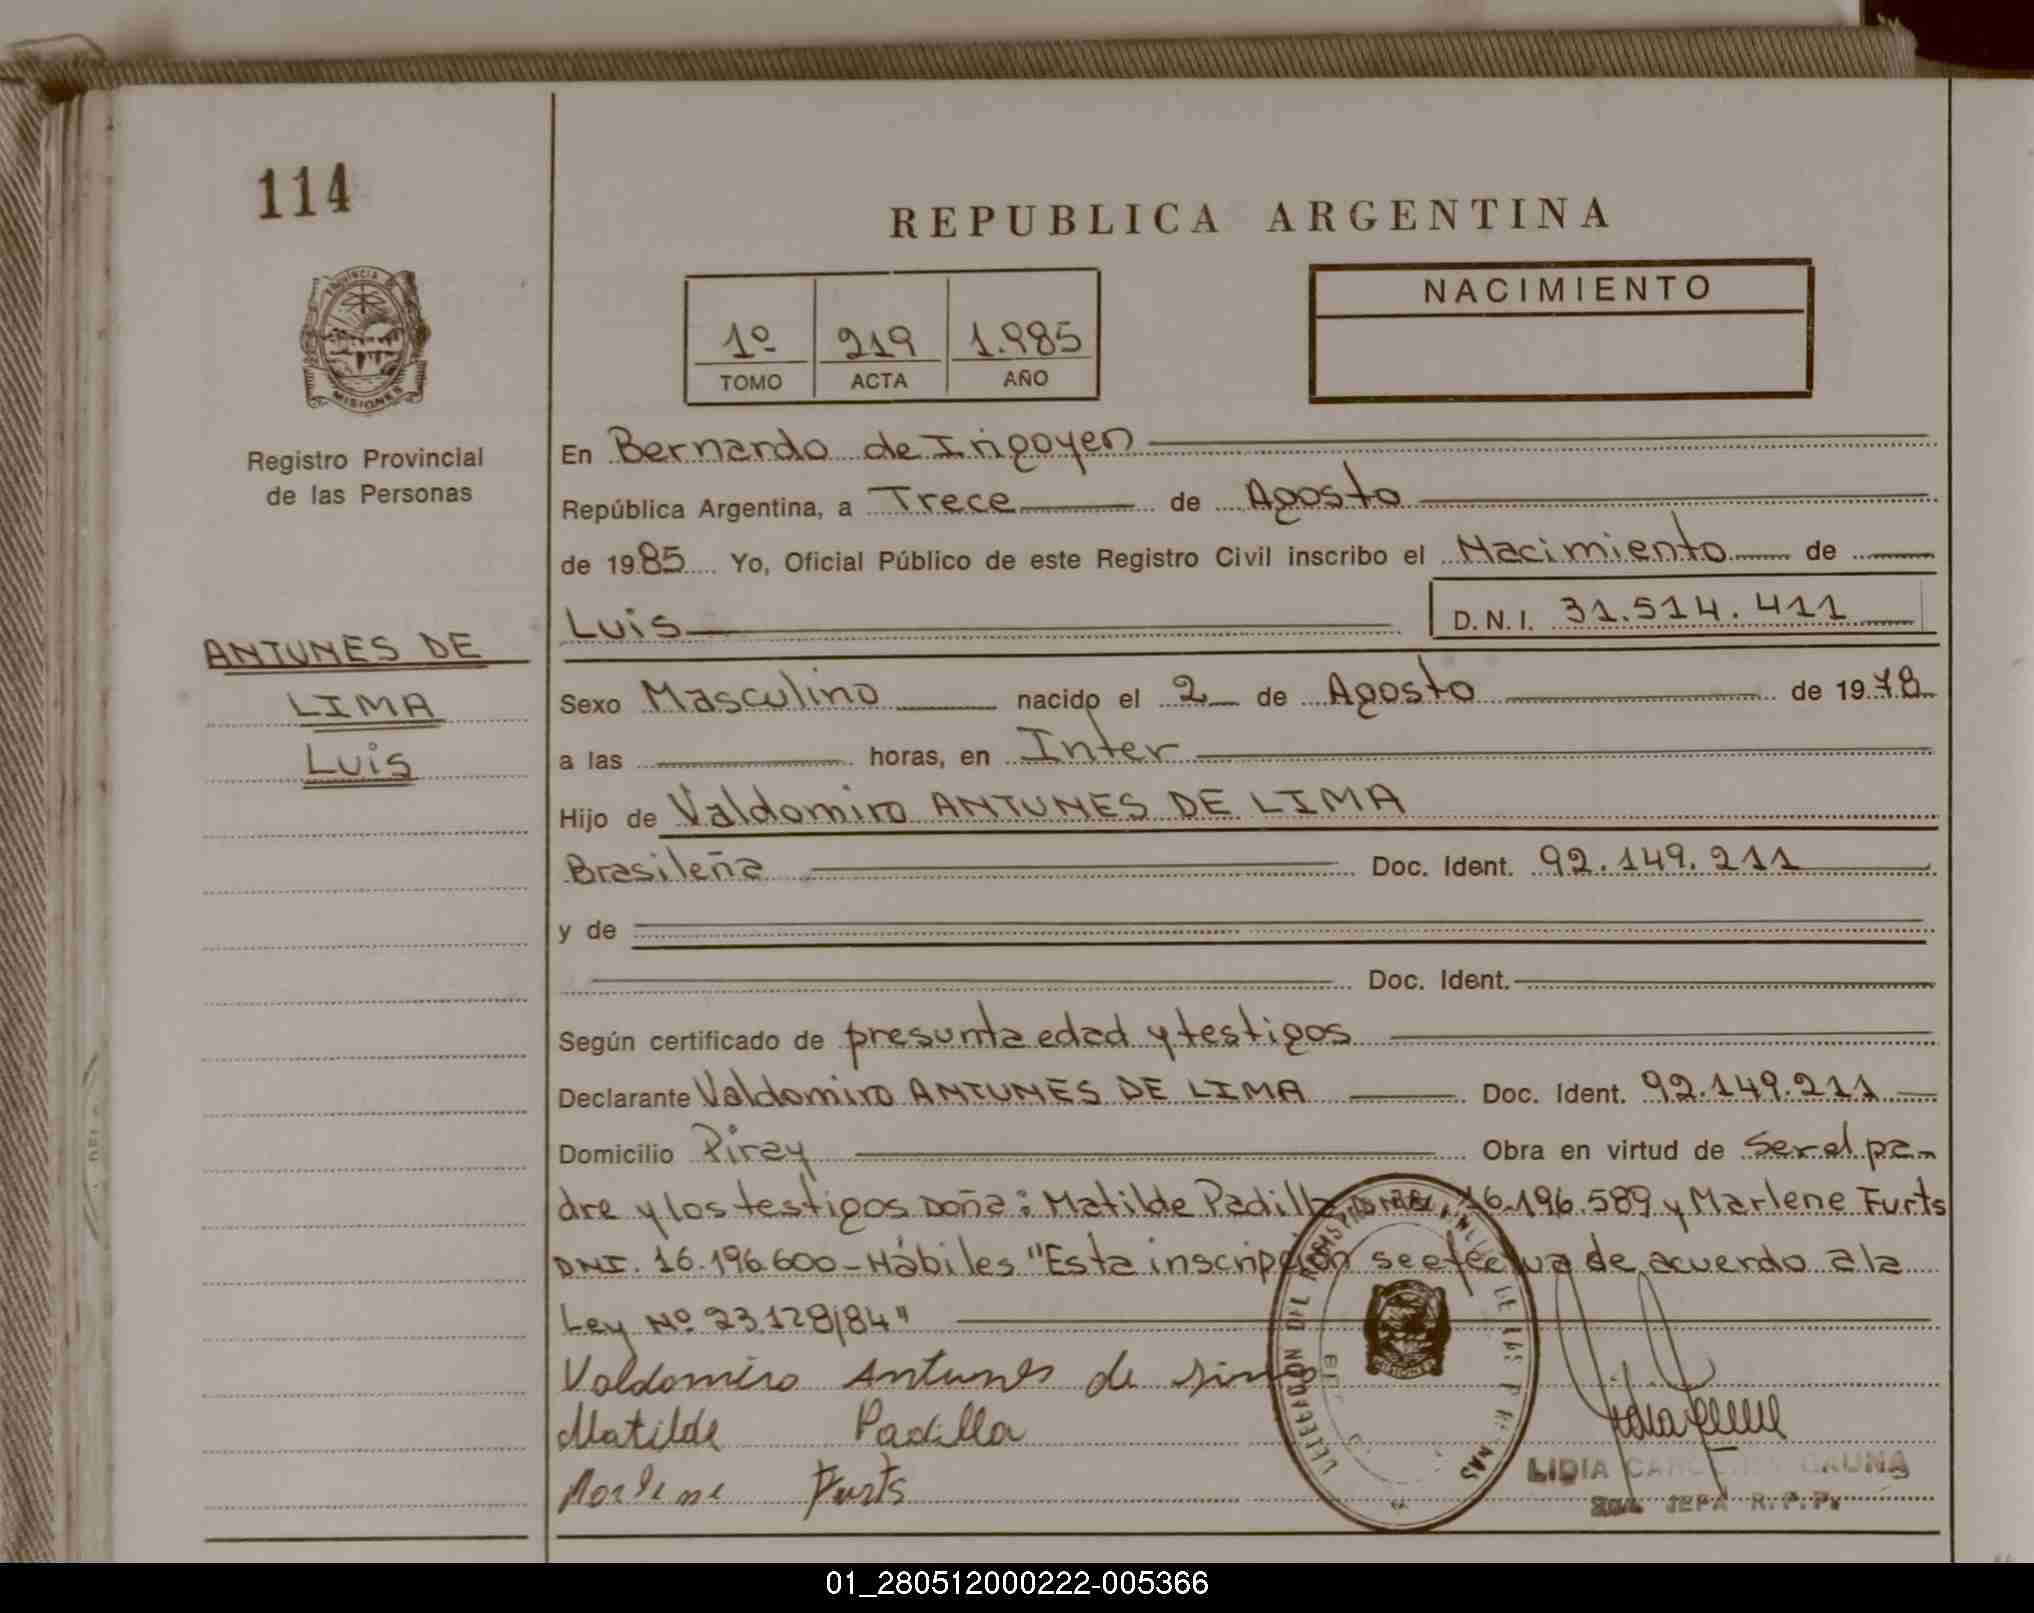 114
REPUBLICA ARGENTINA
PROVINCIA
MISIONES
Registro Provincial
de las Personas
1º 219 1.985
TOMO ACTA AÑO
NACIMIENTO
ANTUNES DE
LIMA
Luis
En Bernardo de Irigoyen
República Argentina, a Trece de Agosto
de 1985 Yo, Oficial Público de este Registro Civil inscribo el Nacimiento de
Luis D.N.I. 31.514.411
Sexo Masculino nacido el 2 de Agosto de 1978
a las horas, en Inter
Hijo de Valdomiro ANTUNES DE LIMA
Brasileña Doc. Ident. 92.149.211
y de
Doc. Ident.
Según certificado de presunta edad y testigos
Declarante Valdomiro ANTUNES DE LIMA Doc. Ident. 92.149.211
Domicilio Piray Obra en virtud de ser el pa-
dre y los testigos Doña: Matilde Padilla 16.196.589 y Marlene Furts
DNI. 16.196.600 - Hábiles "Esta inscripción se efectua de acuerdo a la
Ley Nº 23.128/84"
Valdomiro Antunes de Lima
Matilde Padilla
Marlene Furts
LIDIA GAUNA
JEFA R.P.P.
01_280512000222-005366